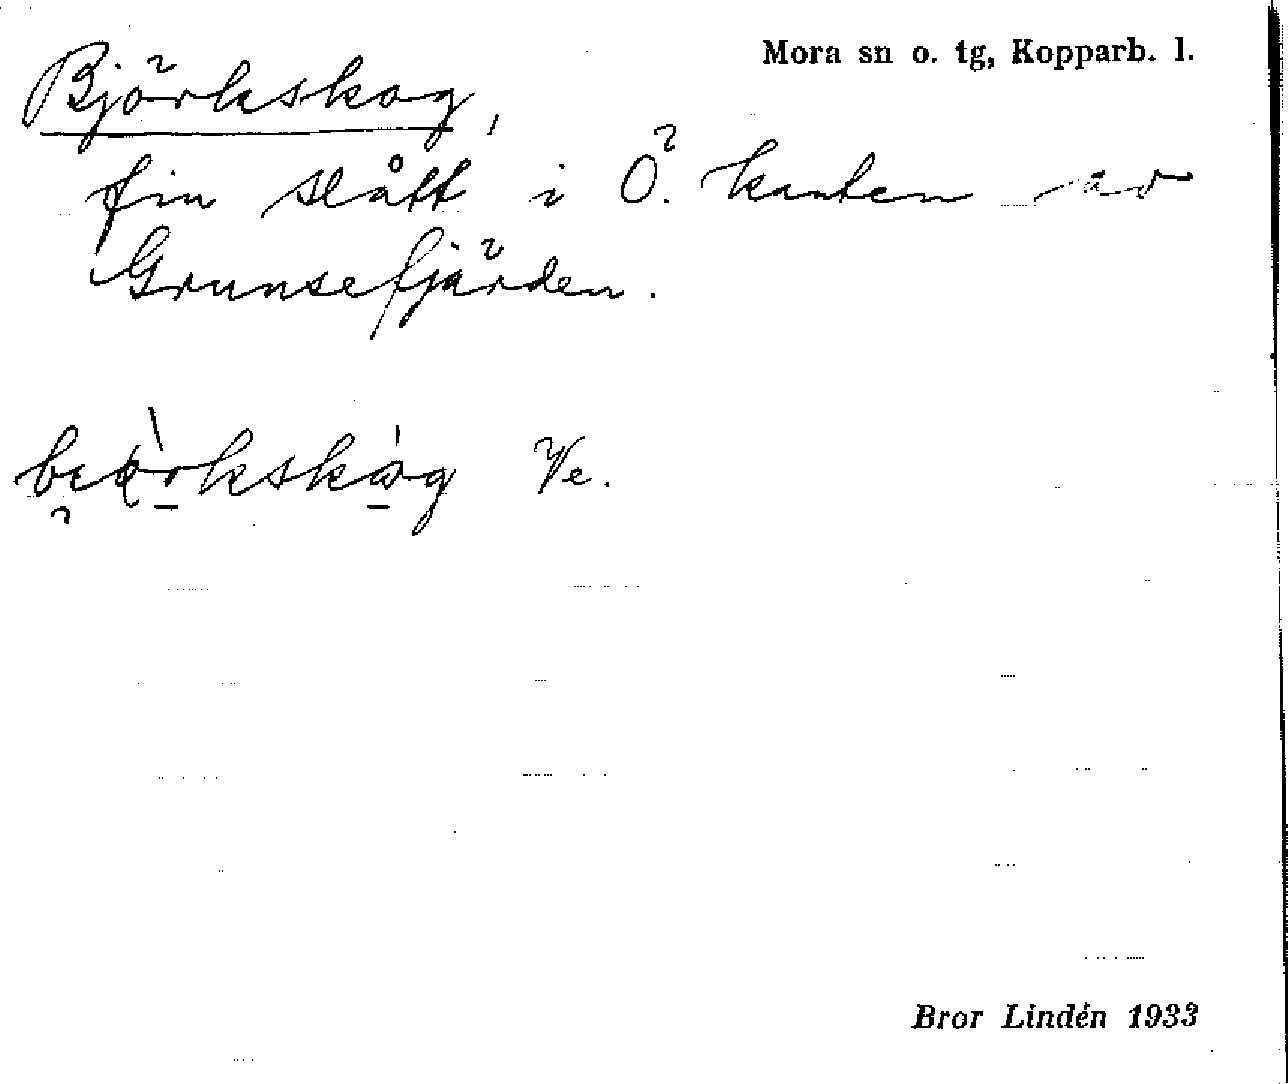 Mora sn o. tg, Kopparb. l.
Björkskog,
fin slått i Ö. kanten av
Grunsefjärden.
Ve.
Bror Lindén 1933